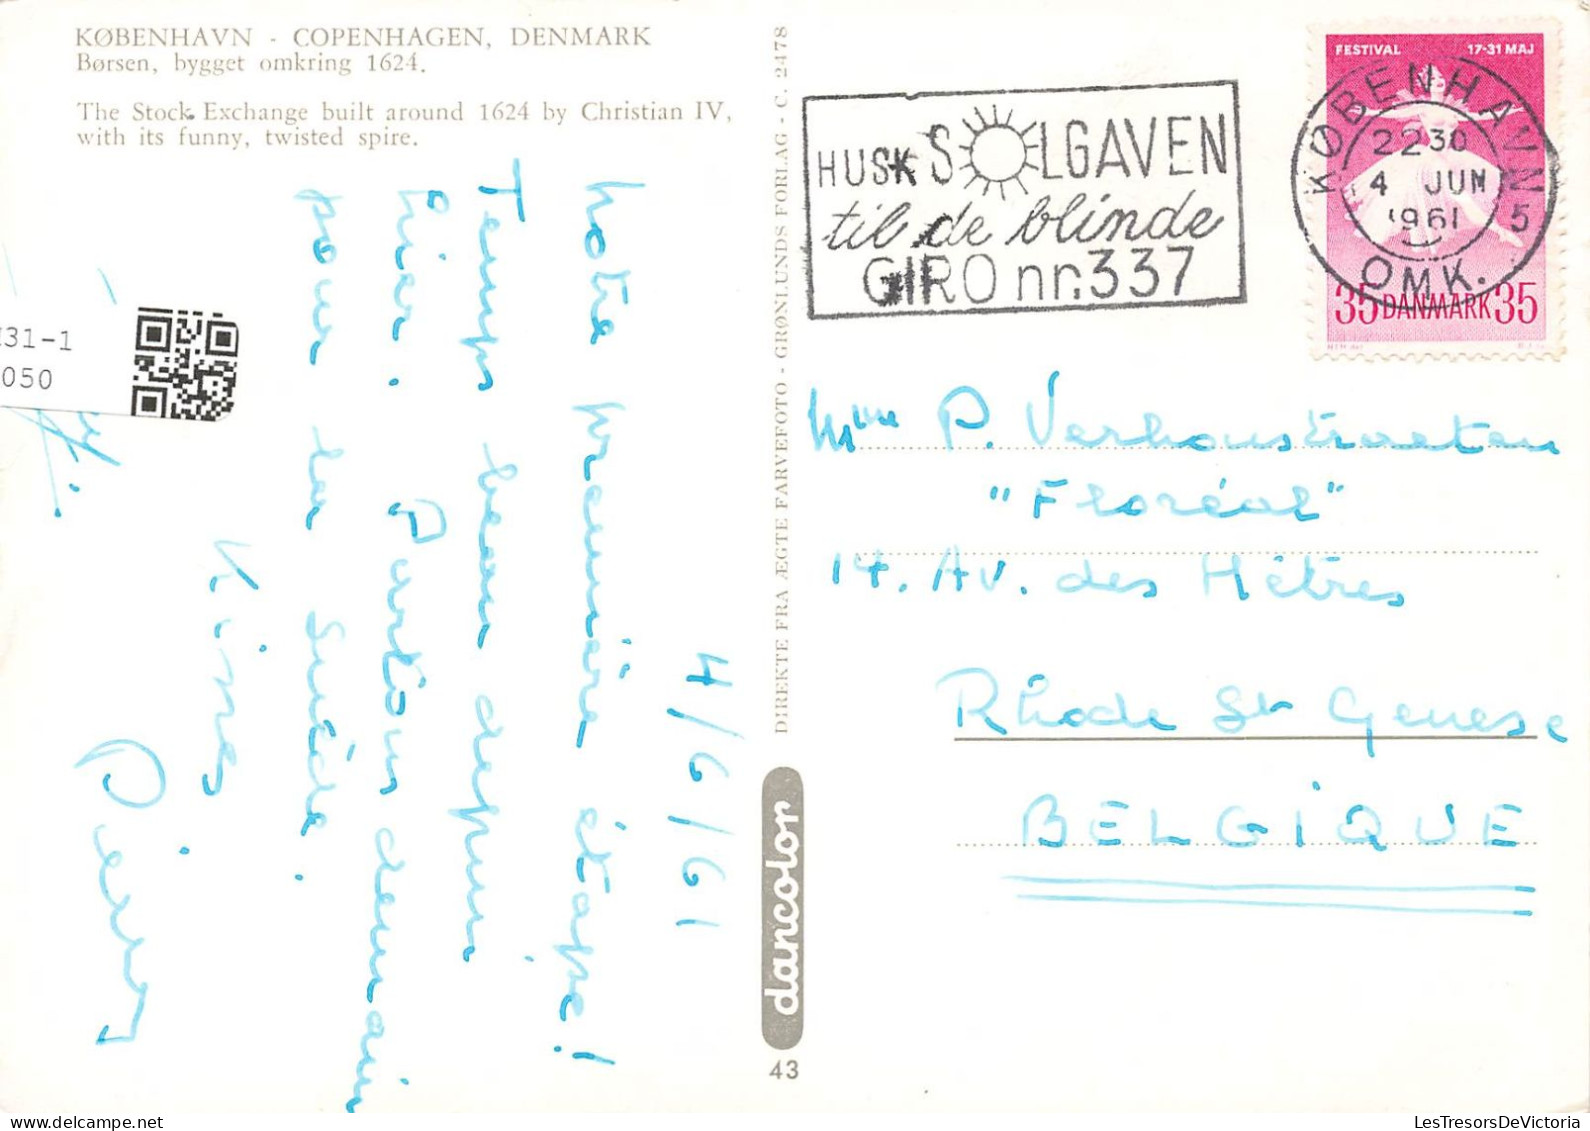 KØBENHAVN - COPENHAGEN, DENMARK
Børsen, bygget omkring 1624.
The Stock Exchange built around 1624 by Christian IV,
with its funny, twisted spire.
4/6/61
Notre première étape!
Temps beau depuis
hier. Partons demain
pour la Suède.
Kisses
31-1
050
DIREKTE FRA ÆGTE FARVEFOTO - GRØNLUNDS FORLAG - C. 2478
dancolor
43
HUSK SOLGAVEN
til de blinde
GIRO nr. 337
FESTIVAL 17-31 MAJ
KØBENHAVN 5
2230
4 JUN
1961
OMK.
35 DANMARK 35
Mme P. Verhoustraeten
"Floréal"
14. Av. des Hêtres
Rhode St Genese
BELGIQUE
LesTresorsDeVictoria